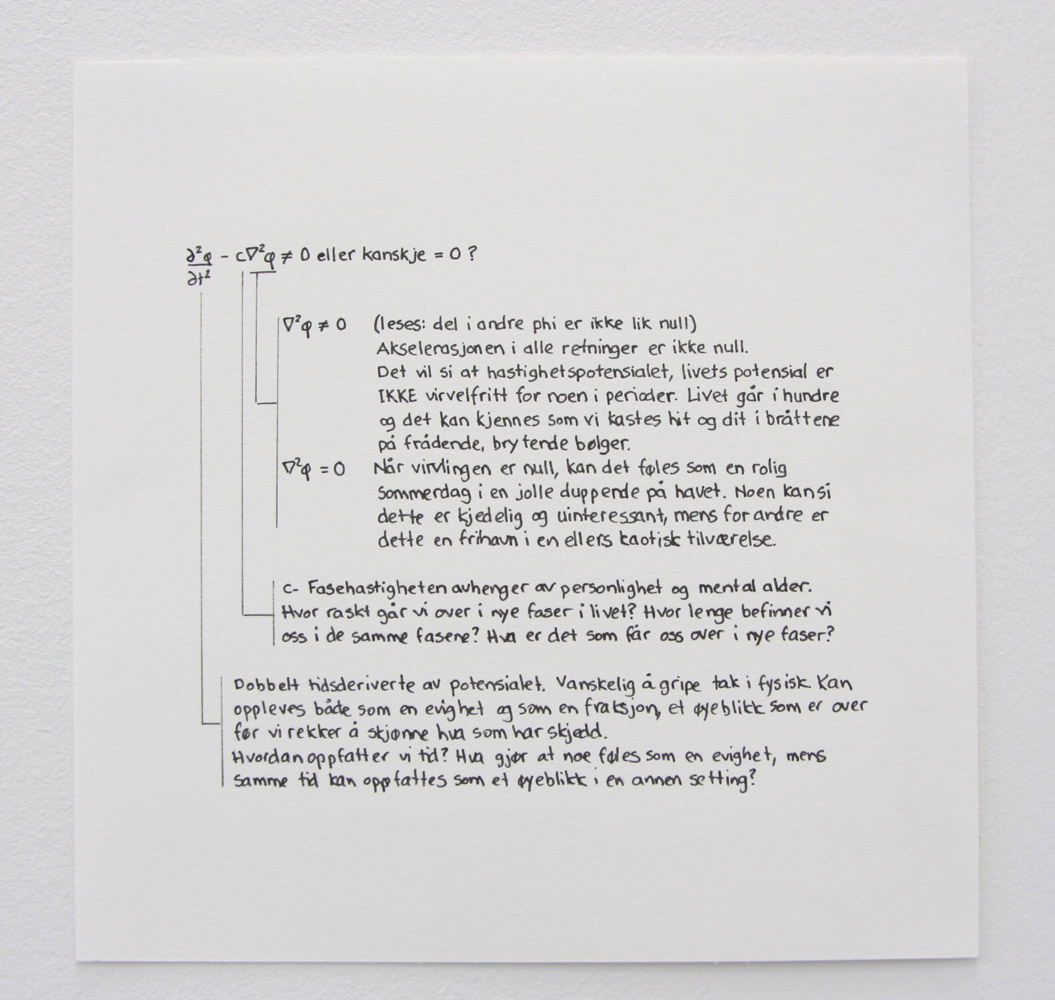 ∂²φ/∂t² - c∇²φ ≠ 0 eller kanskje = 0 ?
∇²φ ≠ 0 (leses: del i andre phi er ikke lik null)
Akselerasjonen i alle retninger er ikke null.
Det vil si at hastighetspotensialet, livets potensial er
IKKE virvelfritt for noen i perioder. Livet går i hundre
og det kan kjennes som vi kastes hit og dit i bråttene
på frådende, brytende bølger.
∇²φ = 0 Når virvlingen er null, kan det føles som en rolig
sommerdag i en jolle duppende på havet. Noen kan si
dette er kjedelig og uinteressant, mens for andre er
dette en frihavn i en ellers kaotisk tilværelse.
c- Fasehastigheten avhenger av personlighet og mental alder.
Hvor raskt går vi over i nye faser i livet? Hvor lenge befinner vi
oss i de samme fasene? Hva er det som får oss over i nye faser?
Dobbelt tidsderiverte av potensialet. Vanskelig å gripe tak i fysisk. Kan
oppleves både som en evighet og som en fraksjon, et øyeblikk som er over
før vi rekker å skjønne hva som har skjedd.
Hvordan oppfatter vi tid? Hva gjør at noe føles som en evighet, mens
samme tid kan oppfattes som et øyeblikk i en annen setting?